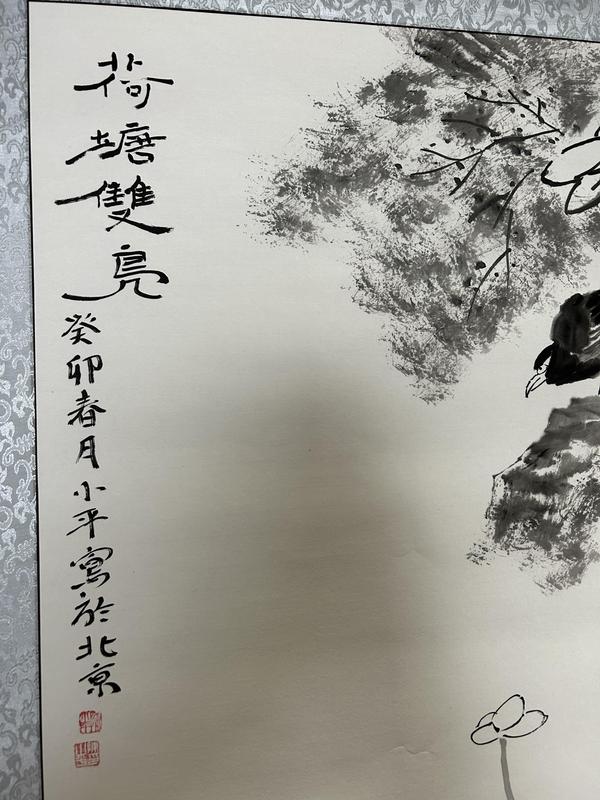 荷塘雙凫
癸卯春月小平寫於北京